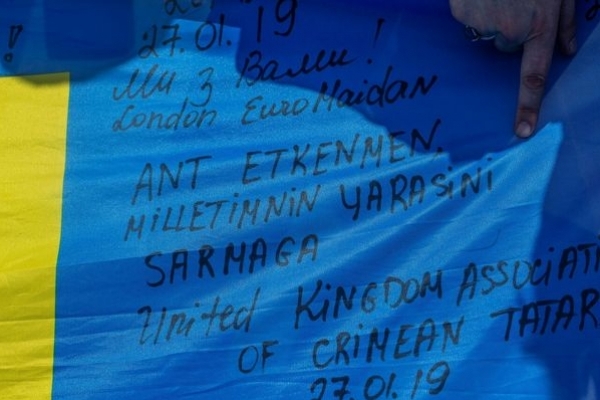 19
!
27.01.
Ми з Вами!
London EuroMaidan
ANT ETKENMEN,
MİLLETİMNİN YARASİNİ
SARMAGA
United KİNGDOM ASSOCİATİ
OF CRİMEAN TATAR
27.01.19